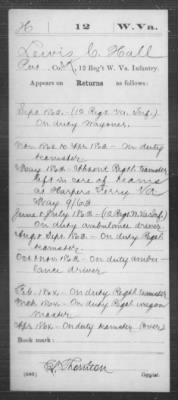 H 12 W.Va.
Lewis C. Hall
Pvt, Co. K, 12 Reg't W. Va. Infantry.
Appears on Returns as follows:
Sept 1862 - (12 Regt. Va. Inf.)
On duty Wagoner.
Nov 1862 to Apr 1863 - On duty
teamster
May 1863 - Absent Regtl. teamster
left in care of teams
at Harpers Ferry Va
May 9/63
June & July 1863 - (12 Regt W.Va Inf.)
On duty ambulance driver
Aug & Sept 1863 - On duty Regtl.
teamster
Oct & Nov 1863 - On duty ambu
lance driver
Feb. 186 - On duty Regtl teamster
Mch 186 - On duty Regtl wagon
master
Apr. 186 - On duty teamster
Book mark:
Thornton
(546) Copyist.